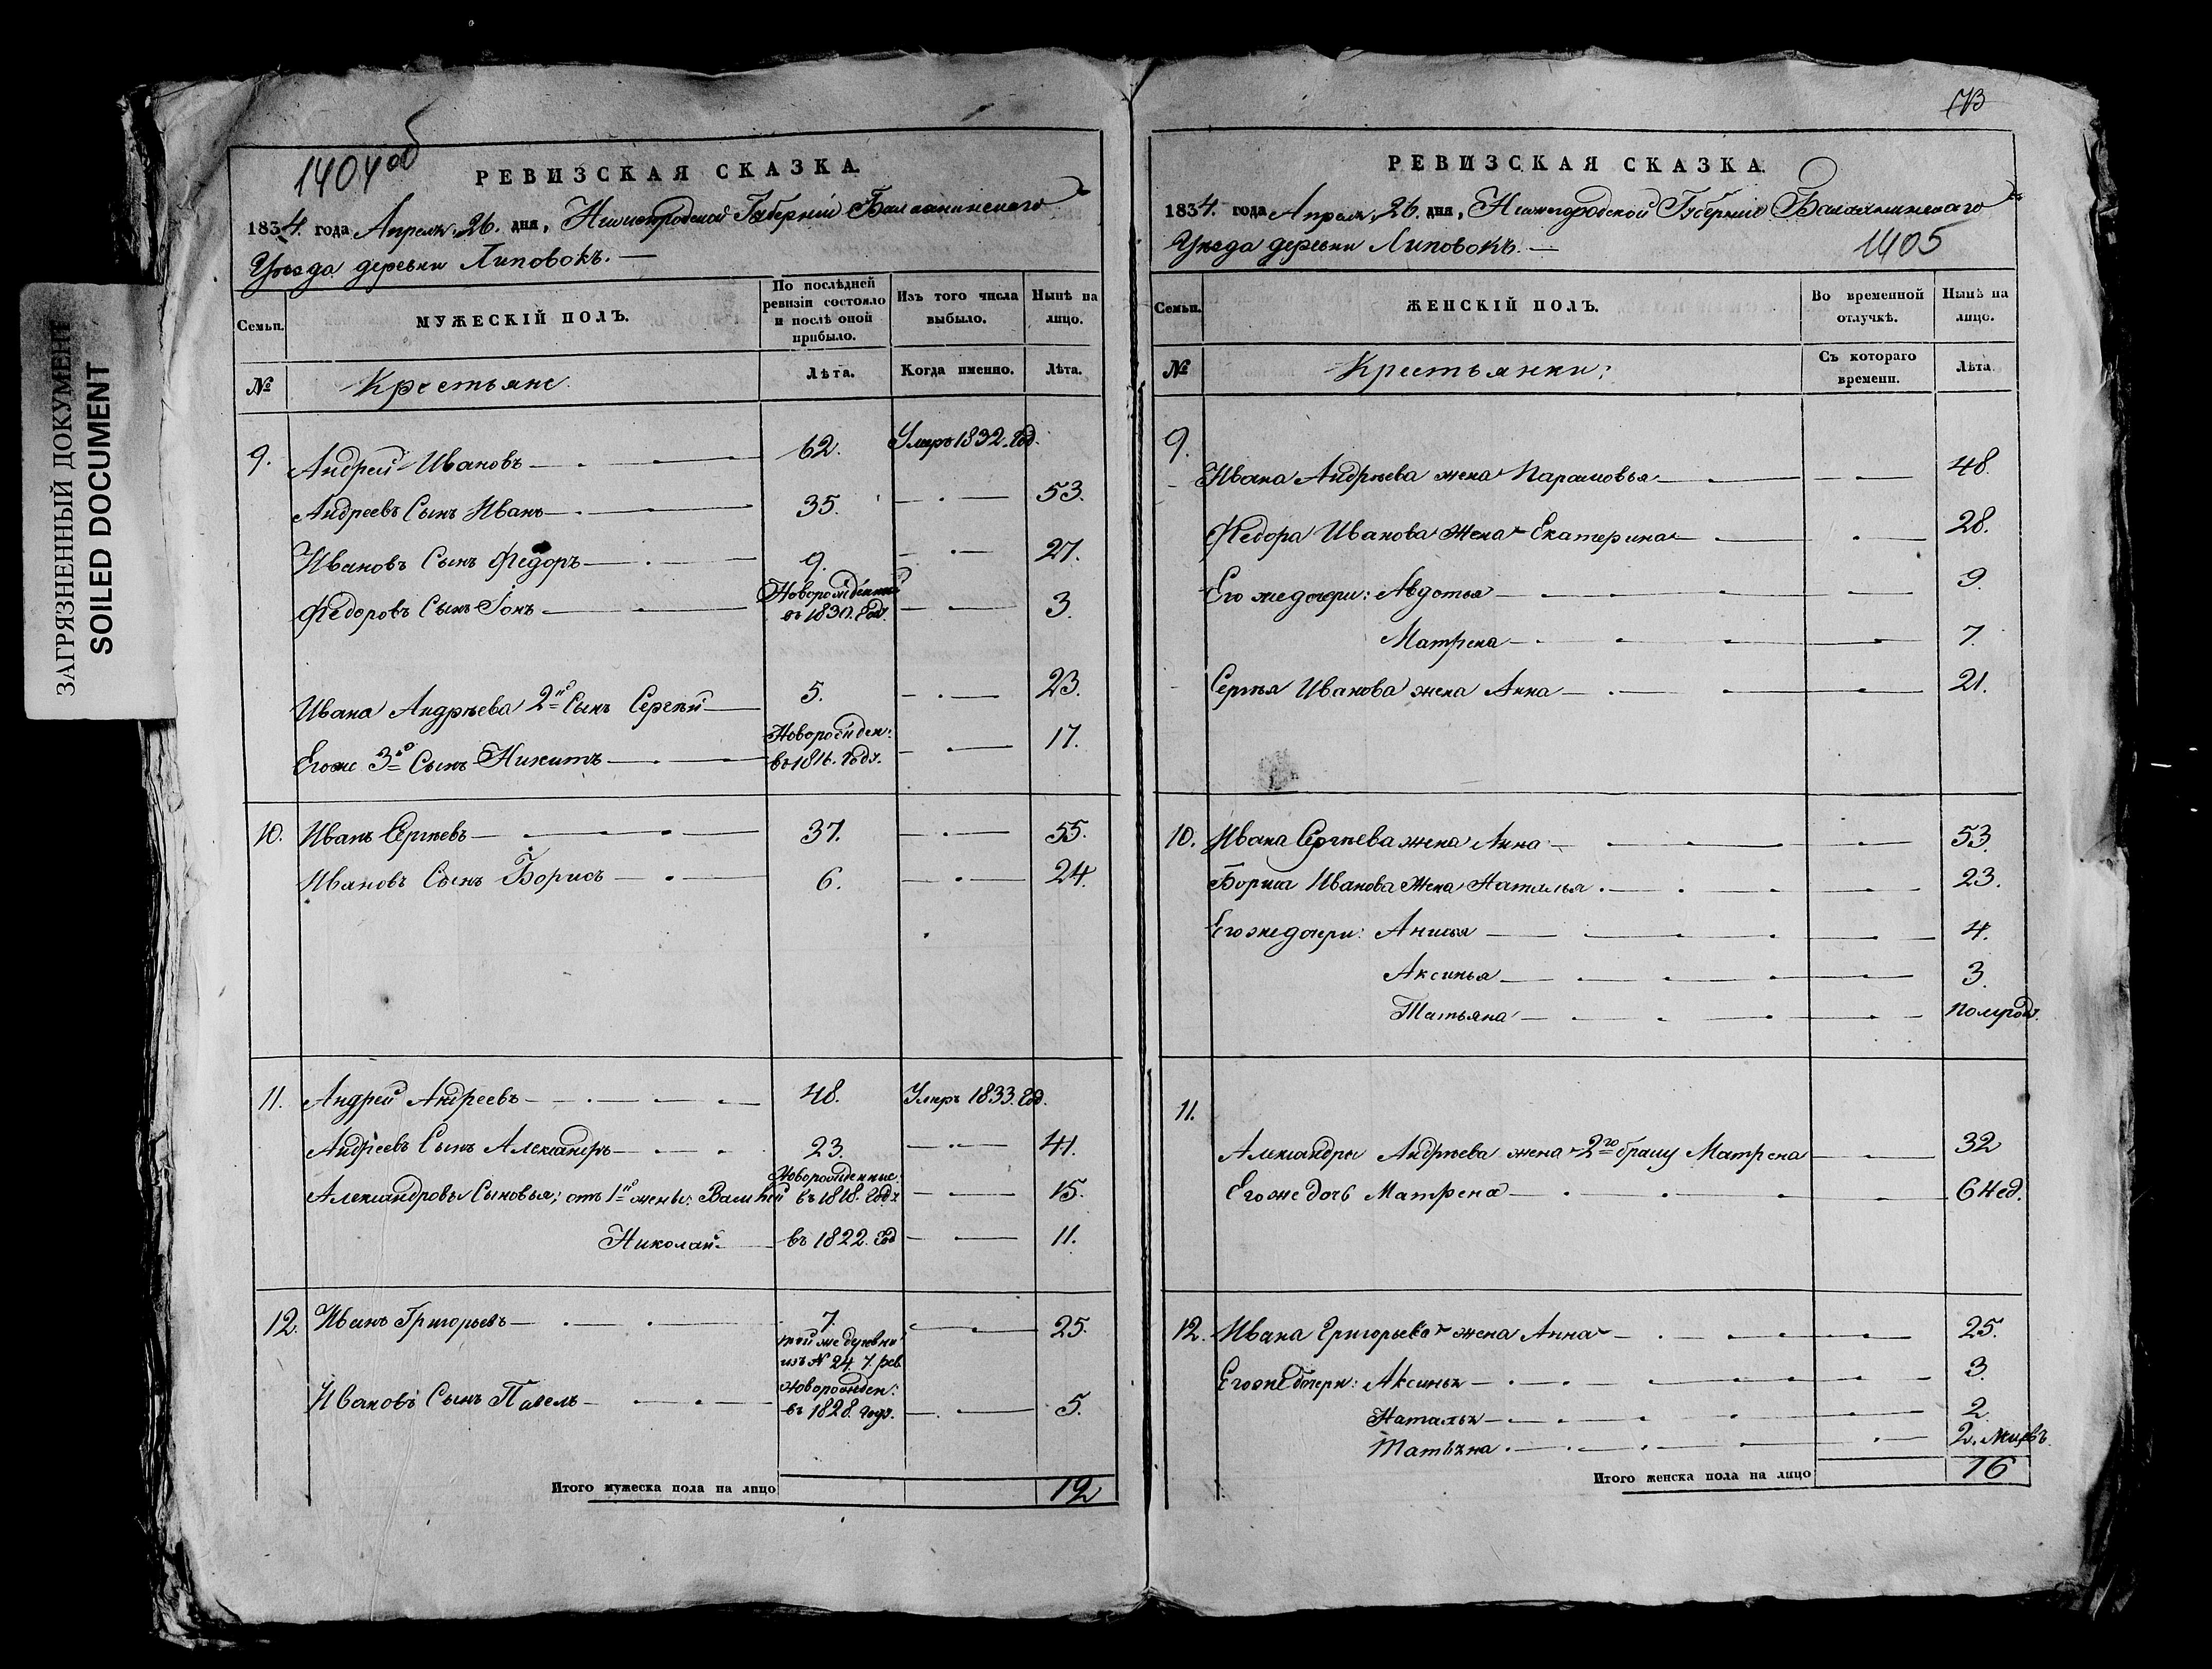 ЗАГРЯЗНЕННЫЙ ДОКУМЕНТ
SOILED DOCUMENT
1404об
РЕВИЗСКАЯ СКАЗКА.
1834. года Апреля 26. дня, Нижегородской Губернiи Балахнинского
Уѣзда деревни Липовокъ. —
Семьи.
МУЖЕСКІЙ ПОЛЪ.
По послѣдней ревизіи состояло и послѣ оной прибыло.
Изъ того числа выбыло.
Нынѣ на лицо.
№
Крестьяне
Лѣта.
Когда именно.
Лѣта.
9. Андрей Ивановъ 62. Умеръ 1832. Год.
Андреевъ Сынъ Иванъ 35. 53.
Ивановъ Сынъ Федоръ 9. 27.
Федоровъ Сынъ Іонъ Новорожденный въ 1830. Год. 3.
Ивана Андрѣева 2й Сынъ Сергѣй 5. 23.
Егоже 3й Сынъ Никитъ Новорожден: въ 1816. Годъ. 17.
10. Иванъ Сергѣевъ 37. 55.
Ивановъ Сынъ Борисъ 6. 24.
11. Андрей Андреевъ 48. Умеръ 1833. Год.
Андреевъ Сынъ Александръ 23. 41.
Александровы Сыновья; отъ 1й жены: Василей Новорожденные: въ 1818. Годъ 15.
Николай въ 1822. Год 11.
12. Иванъ Григорьевъ 7. 25.
той же деревни
изъ № 24. 7. рев.
Ивановъ Сынъ Павелъ Новорожден: въ 1828. году. 5.
Итого мужеска пола на лицо 12
173
РЕВИЗСКАЯ СКАЗКА.
1834. года Апреля, 26. дня, Нижегородской Губернiи Балахнинскаго
Уѣзда деревни Липовокъ. —
1405
Семьи.
ЖЕНСКІЙ ПОЛЪ.
Во временной отлучкѣ.
Нынѣ на лицо.
№
Крестьянки:
Съ котораго времени.
Лѣта.
9.
Ивана Андрѣева жена Парасковья 48.
Федора Иванова жена Екатерина 28.
Его же дочери: Авдотья 9
Матрена 7.
Сергѣя Иванова жена Анна 21.
10. Ивана Сергѣева жена Анна 53.
Бориса Иванова жена Наталья 23.
Егоже дочери: Анисья 4.
Аксинья 3.
Татьяна полгода.
11.
Александра Андрѣева жена 2го браку Матрена 32
Егоже дочь Матрена 6 Нед.
12. Ивана Григорьева жена Анна 25.
Егоже дочери: Аксинья 3.
Наталья 2
Татьяна 2. Месвъ.
Итого женска пола на лицо 16